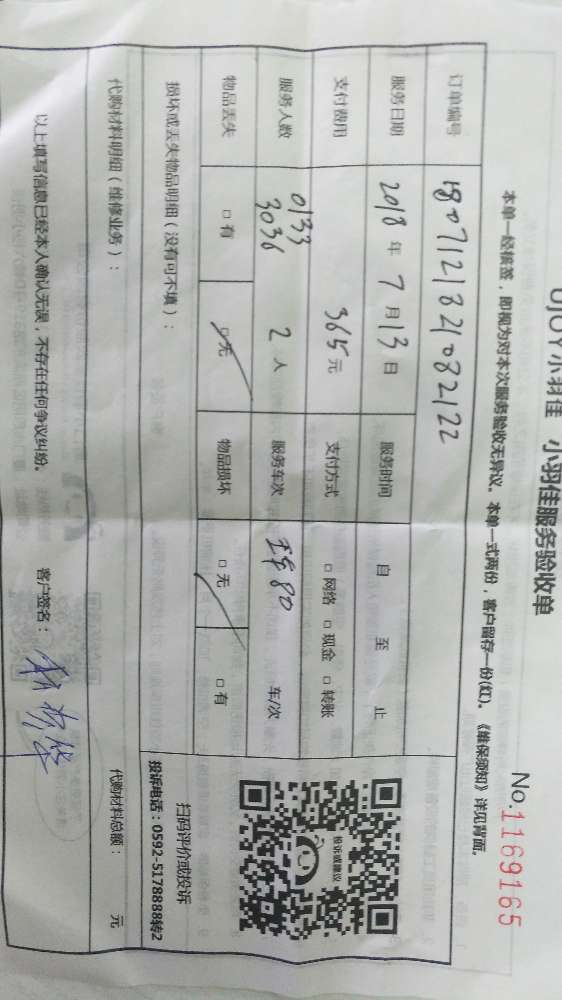 UJOY小羽佳 小羽佳服务验收单
No.1169165
本单一经核签，即视为对本次服务验收无异议。本单一式两份，客户留存一份(红)。《维保须知》详见背面。
订单编号 1807121821082122
服务日期 2018 年 7 月 13 日 服务时间 自 至 止
支付费用 365 元 支付方式 □ 网络 □ 现金 □ 转账
服务人数 0133 3036 2 人 服务车次 80 车/次
物品丢失 □ 有 □ 无 物品损坏 □ 无 □ 有
损坏或丢失物品明细（没有可不填）：
投诉或建议
扫码评价或投诉
投诉电话：0592-5178888转2
代购材料明细（维修业务）： 代购材料总额： 元
以上填写信息已经本人确认无误，不存在任何争议纠纷。 客户签名：